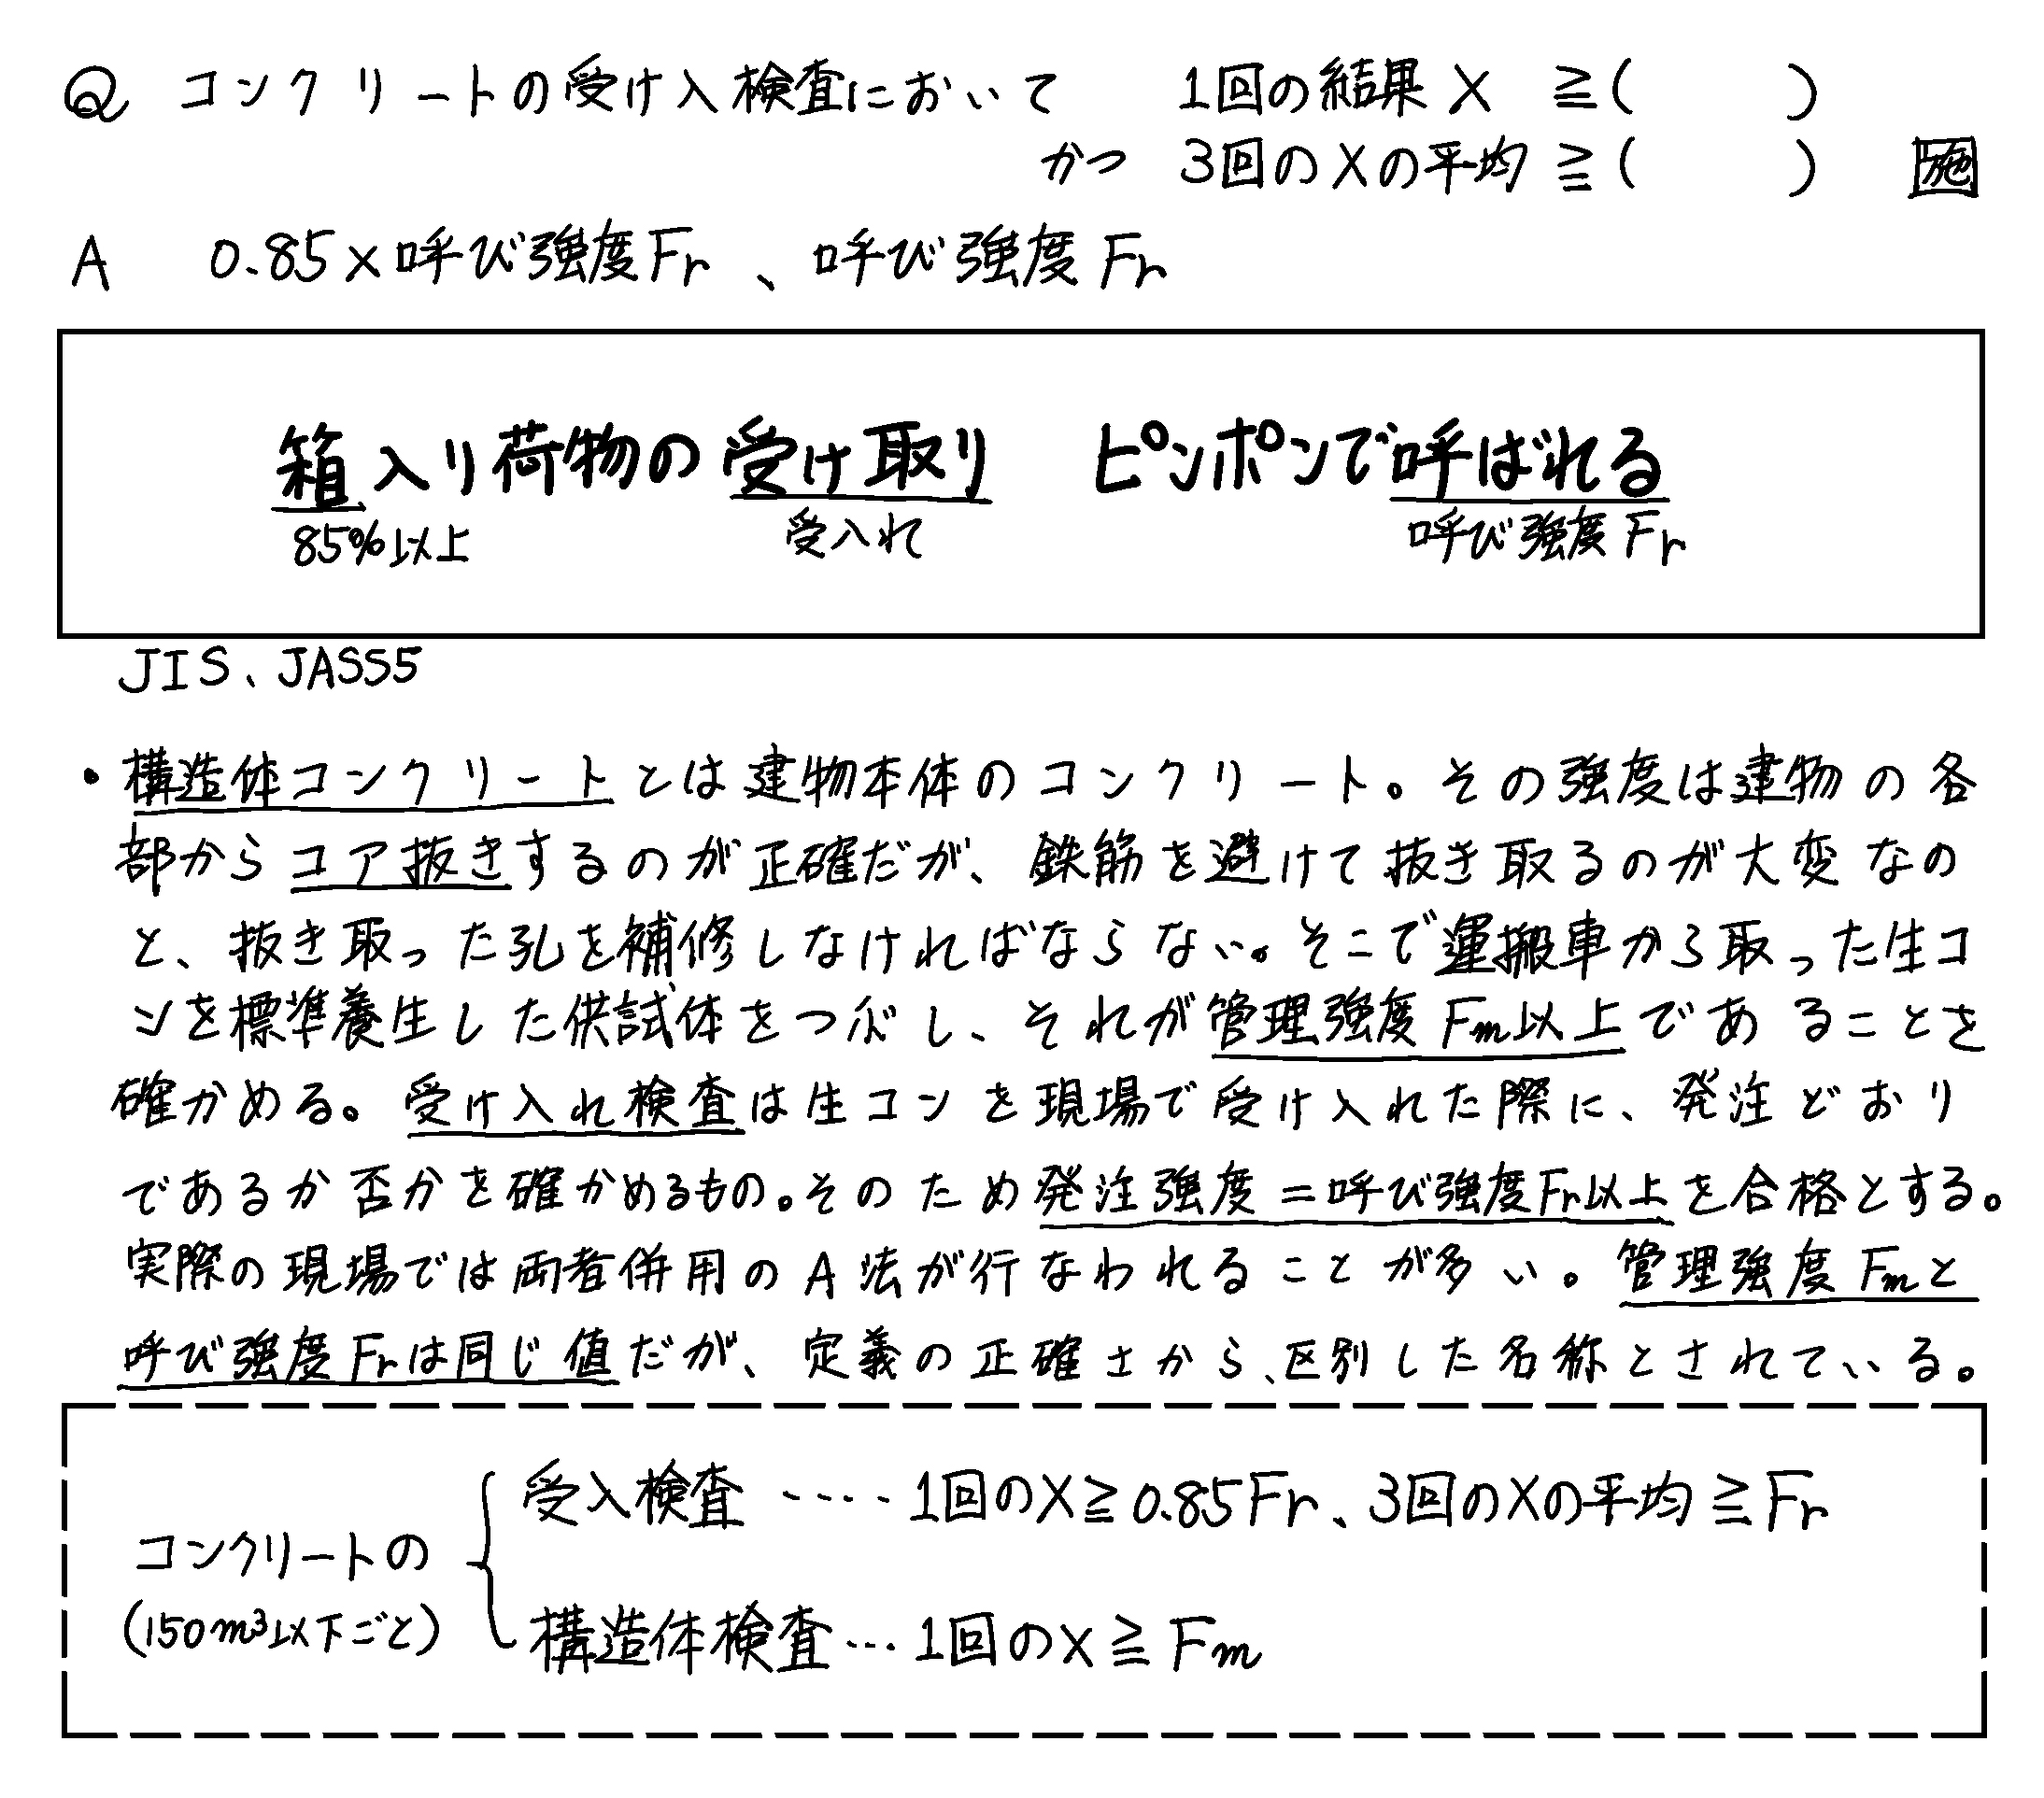 Q コンクリートの受け入検査において 1回の結果X ≧( )
かつ 3回のXの平均 ≧( ) 施
A 0.85×呼び強度Fr、呼び強度Fr
箱入り荷物の受け取り ピンポンで呼ばれる
85%以上 受入れ 呼び強度Fr
JIS、JASS5
・構造体コンクリートとは建物本体のコンクリート。その強度は建物の各
部からコア抜きするのが正確だが、鉄筋を避けて抜き取るのが大変なの
と、抜き取った孔を補修しなければならない。そこで運搬車から取った生コ
ンを標準養生した供試体をつぶし、それが管理強度Fm以上であることを
確かめる。受け入れ検査は生コンを現場で受け入れた際に、発注どおり
であるか否かを確かめるもの。そのため発注強度=呼び強度Fr以上を合格とする。
実際の現場では両者併用のA法が行なわれることが多い。管理強度Fmと
呼び強度Frは同じ値だが、定義の正確さから、区別した名称とされている。
受入検査 ‥‥ 1回のX≧0.85Fr、3回のXの平均≧Fr
コンクリートの
(150m³以下ごと)
構造体検査… 1回のX≧Fm